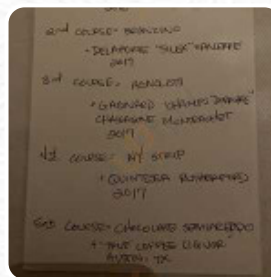 2nd COURSE- BRONZINO
• DELAPORTE "SILEX" SANCERRE
2017
3rd COURSE- AGNOLOTTI
• GAGNARD
CHASSAGNE MONTRACHET
2017
COURSE- NY STRIP
• QUINTESSA RUTHERFORD
2017
COURSE- CHOCOLATE SEMIFREDDO
COFFEE LIQUOR
AUSTIN, TX